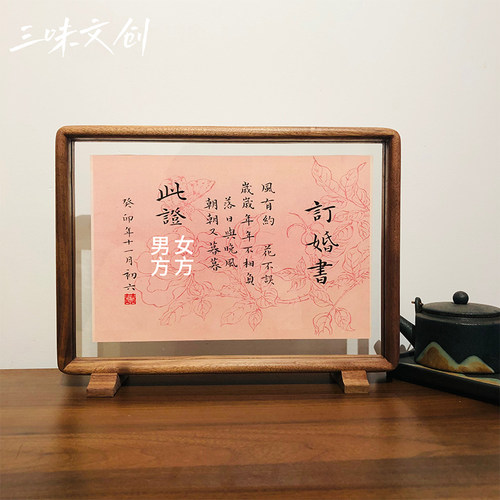 三味文创
訂婚書
風有約 花不誤
歲歲年年不相負
落日與晚風
朝朝又暮暮
此證
女方
男方
癸卯年十一月初六